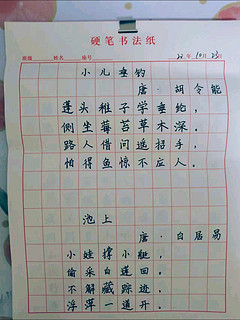 硬笔书法纸
班级 姓名 编号 22年10月23日
小儿垂钓
唐·胡令能
蓬头稚子学垂纶,
侧坐莓苔草木深。
路人借问遥招手,
怕得鱼惊不应人。
池上
唐·白居易
小娃撑小艇,
偷采白莲回。
不解藏踪迹,
浮萍一道开。